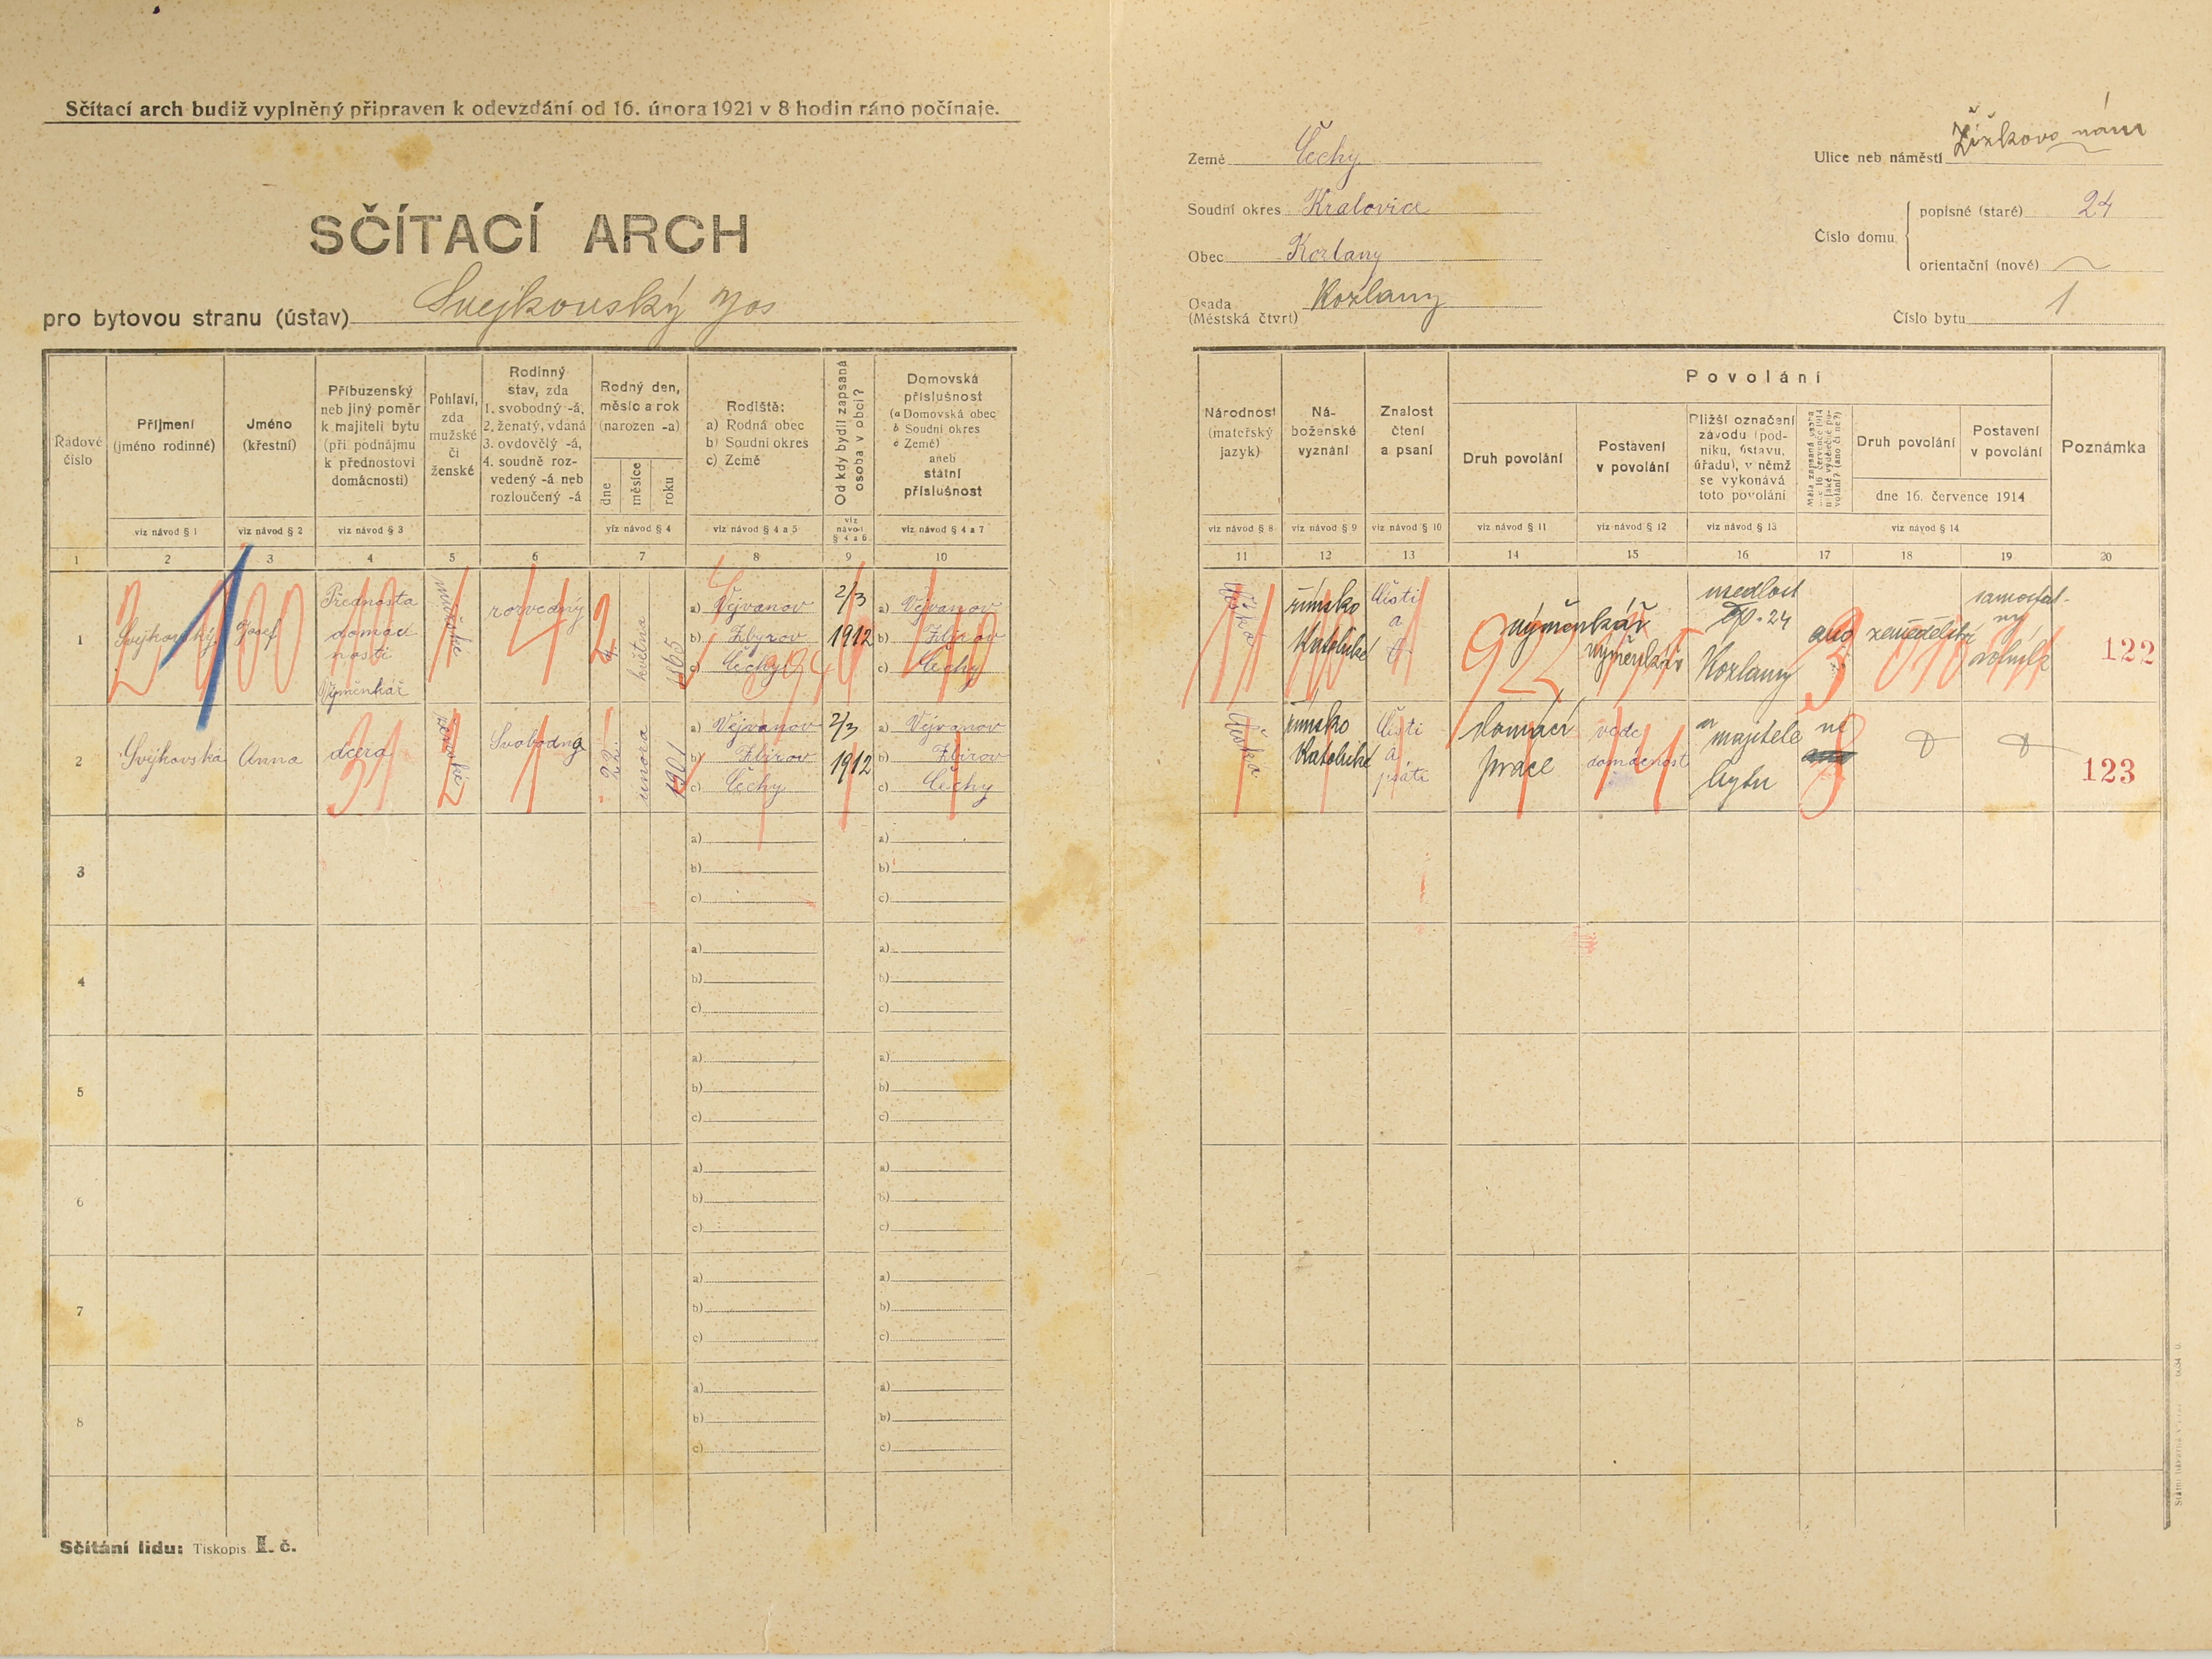 Sčítací arch budiž vyplněný připraven k odevzdání od 16. února 1921 v 8 hodin ráno počínaje.
SČÍTACÍ ARCH
pro bytovou stranu (ústav) Svejkovský Jos
Země Čechy
Soudní okres Kralovice
Obec Kozlany
Osada
(Městská čtvrt) Kozlany
Ulice neb náměstí Žižkovo nám
Číslo domu
popisné (staré) 24
orientační (nové)
Číslo bytu 1
Řadové číslo
Příjmení (jméno rodinné)
Jméno (křestní)
Příbuzenský neb jiný poměr k majiteli bytu (při podnájmu k přednostovi domácnosti)
Pohlaví, zda mužské či ženské
Rodinný stav, zda
1. svobodný -á,
2. ženatý, vdaná
3. ovdovělý -á,
4. soudně rozvedený -á neb rozloučený -á
Rodný den, měsíc a rok (narozen -a)
dne měsíce roku
Rodiště:
a) Rodná obec
b) Soudní okres
c) Země
Od kdy bydlí zapsaná osoba v obci?
Domovská příslušnost
(a Domovská obec
b Soudní okres
c Země)
aneb
státní příslušnost
Národnost (mateřský jazyk)
Náboženské vyznání
Znalost čtení a psaní
Povolání
Druh povolání
Postavení v povolání
Bližší označení závodu (podniku, ústavu, úřadu), v němž se vykonává toto povolání
Měla zapsaná osoba dne 16. července 1914 nějaké výdělečné povolání? (ano či ne?)
Druh povolání
Postavení v povolání
dne 16. července 1914
Poznámka
viz návod § 1 viz návod § 2 viz návod § 3 viz návod § 4 viz návod § 4 a 5 viz návod § 4 a 6 viz návod § 4 a 7
viz návod § 8 viz návod § 9 viz návod § 10 viz návod § 11 viz návod § 12 viz návod § 13 viz návod § 14
1 2 3 4 5 6 7 8 9 10
11 12 13 14 15 16 17 18 19 20
1 Svejkovský Josef
Přednosta
domác
nosti
Výměnkář
mužské
rozvedený
4 května 1865
a) Vejvanov
b) Zbirov
c) Čechy
2/3
1912
a) Vejvanov
b) Zbirov
c) Čechy
Česká
římsko
Katolické
Čísti
a
výměnkář
výměnkář
usedlost
čp. 24
Kozlany
ano
zemědělství
samostat-
ný
rolník
122
2 Svejkovská Anna
dcera
ženské
Svobodná
22 února 1901
a) Vejvanov
b) Zbirov
c) Čechy
2/3
1912
a) Vejvanov
b) Zbirov
c) Čechy
Česká
římsko
Katolické
Čísti
a
psáti
domácí
práce
vede
domácnost
u
majitele
bytu
ne
123
3
a)
b)
c)
a)
b)
c)
4
a)
b)
c)
a)
b)
c)
5
a)
b)
c)
a)
b)
c)
6
a)
b)
c)
a)
b)
c)
7
a)
b)
c)
a)
b)
c)
8
a)
b)
c)
a)
b)
c)
Sčítání lidu: Tiskopis II. č.